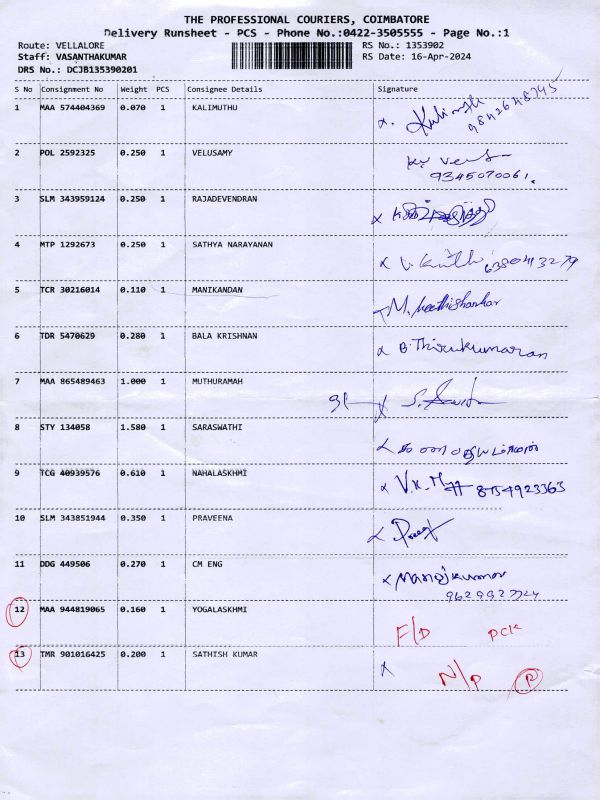 THE PROFESSIONAL COURIERS, COIMBATORE
Delivery Runsheet - PCS - Phone No.:0422-3505555 - Page No.:1
Route: VELLALORE RS No.: 1353902
Staff: VASANTHAKUMAR RS Date: 16-Apr-2024
DRS No.: DCJB135390201
S No Consignment No Weight PCS Consignee Details Signature
1 MAA 574404369 0.070 1 KALIMUTHU
2 POL 2592325 0.250 1 VELUSAMY
9345070061.
3 SLM 343959124 0.250 1 RAJADEVENDRAN
4 MTP 1292673 0.250 1 SATHYA NARAYANAN
5 TCR 30216014 0.110 1 MANIKANDAN
6 TDR 5470629 0.280 1 BALA KRISHNAN B.Thirukumaran
7 MAA 865489463 1.000 1 MUTHURAMAH
8 STY 134058 1.580 1 SARASWATHI
9 TCG 40939576 0.610 1 NAHALASKHMI 8754923363
10 SLM 343851944 0.350 1 PRAVEENA
11 DDG 449506 0.270 1 CM ENG Manojkumar
12 MAA 944819065 0.160 1 YOGALASKHMI F/D PCK
13 TMR 901016425 0.200 1 SATHISH KUMAR N/P P